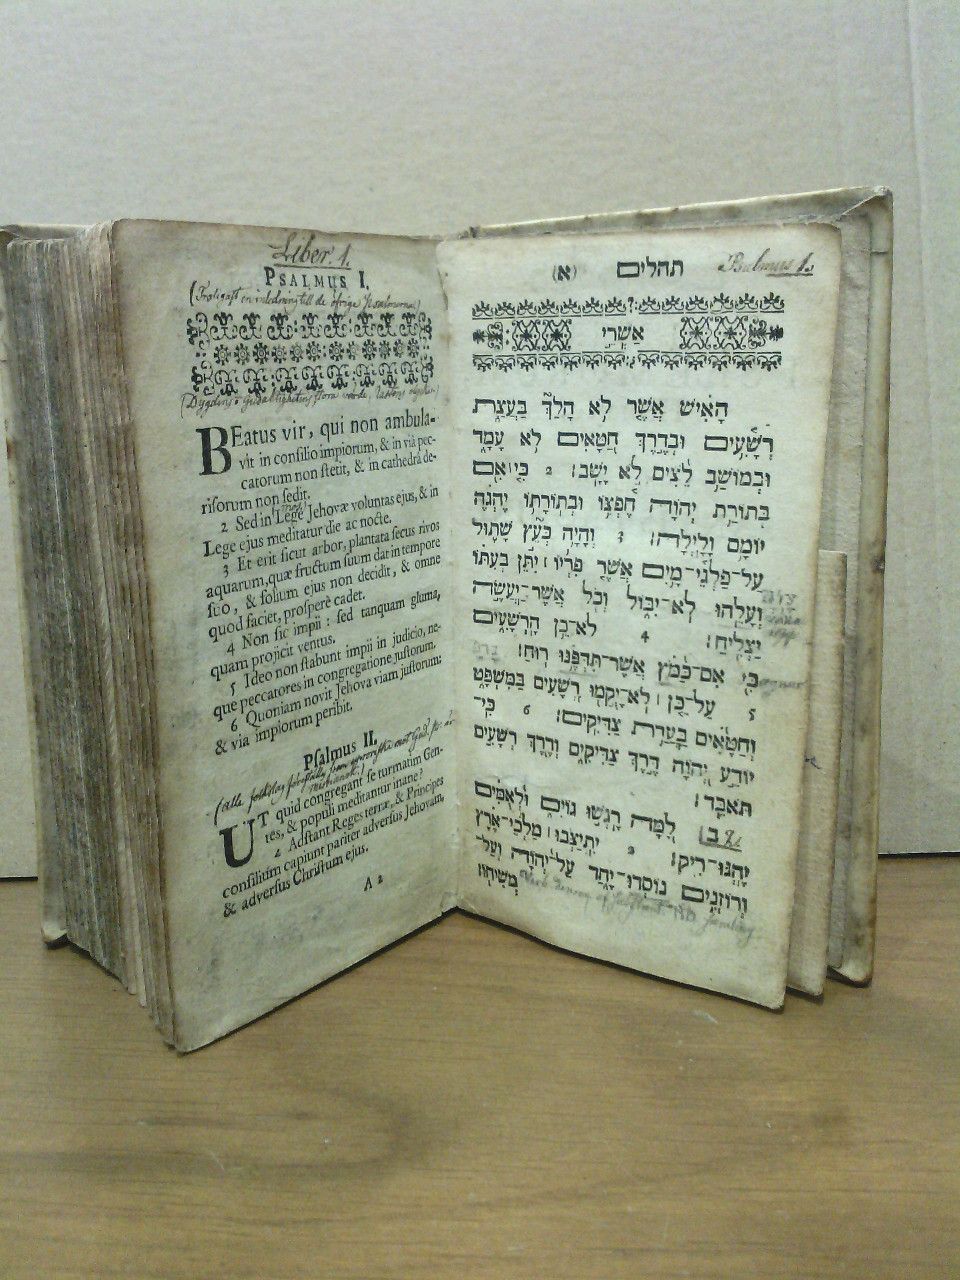 Liber. 1.
PSALMUS I.
BEatus vir, qui non ambula-
vit in consilio impiorum, & in viâ pec-
catorum non stetit, & in cathedrâ de-
risorum non sedit.
2 Sed in Lege Jehovæ voluntas ejus, & in
Lege ejus meditatur die ac nocte.
3 Et erit sicut arbor, plantata secus rivos
aquarum, quæ fructum suum dat in tempore
suo, & folium ejus non decidit, & omne
quod faciet, prosperè cadet.
4 Non sic impii: sed tanquam gluma,
quam projicit ventus.
5 Ideo non stabunt impii in judicio, ne-
que peccatores in congregatione justorum.
6 Quoniam novit Jehova viam justorum:
& via impiorum peribit.
Psalmus II.
UT quid congregant se turmatim Gen-
tes, & populi meditantur inane?
2 Adstant Reges terræ, & Principes
consilium capiunt pariter adversus Jehovam,
& adversus Christum ejus.
A 2
תהלים (א) Psalmus 1.
אַשְׁרֵי
הָאִישׁ אֲשֶׁר לֹא הָלַךְ בַּעֲצַת
רְשָׁעִים וּבְדֶרֶךְ חַטָּאִים לֹא עָמָד
וּבְמוֹשַׁב לֵצִים לֹא יָשָׁב: 2 כִּי אִם
בְּתוֹרַת יְהוָה חֶפְצוֹ וּבְתוֹרָתוֹ יֶהְגֶּה
יוֹמָם וָלָיְלָה: 3 וְהָיָה כְּעֵץ שָׁתוּל
עַל־פַּלְגֵי־מָיִם אֲשֶׁר פִּרְיוֹ יִתֵּן בְּעִתּוֹ
וְעָלֵהוּ לֹא־יִבּוֹל וְכֹל אֲשֶׁר־יַעֲשֶׂה
יַצְלִיחַ: 4 לֹא־כֵן הָרְשָׁעִים
כִּי אִם־כַּמֹּץ אֲשֶׁר־תִּדְּפֶנּוּ רוּחַ:
5 עַל־כֵּן לֹא־יָקֻמוּ רְשָׁעִים בַּמִּשְׁפָּט
וְחַטָּאִים בַּעֲדַת צַדִּיקִים: 6 כִּי־
יוֹדֵעַ יְהוָה דֶּרֶךְ צַדִּיקִים וְדֶרֶךְ רְשָׁעִים
תֹּאבֵד:
ב לָמָּה רָגְשׁוּ גוֹיִם וּלְאֻמִּים
יֶהְגּוּ־רִיק: 2 יִתְיַצְּבוּ מַלְכֵי־אֶרֶץ
וְרוֹזְנִים נוֹסְדוּ־יָחַד עַל־יְהוָה וְעַל־
מְשִׁיחוֹ